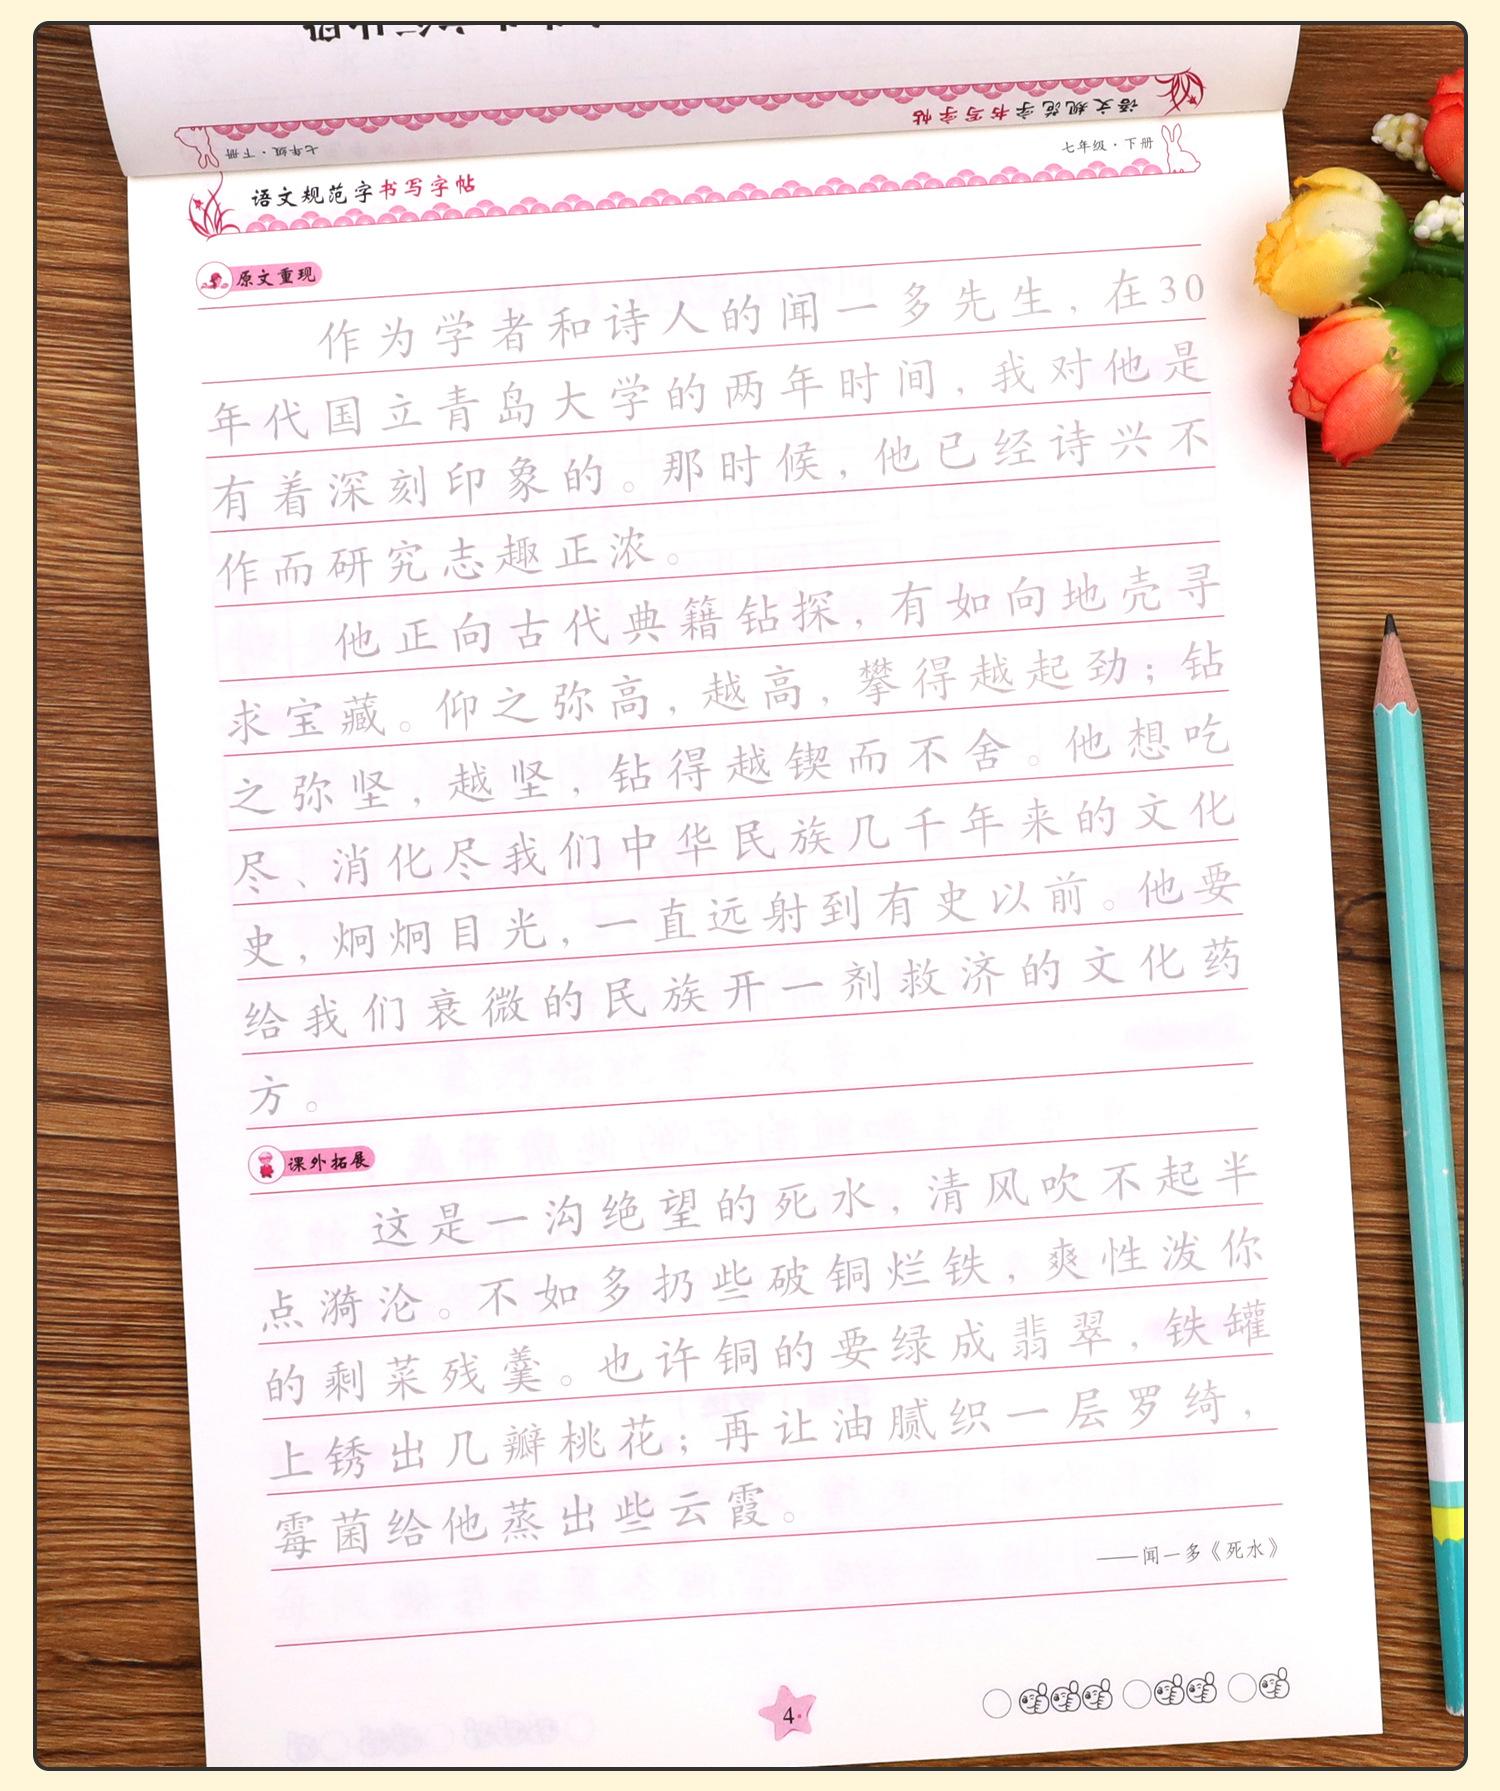 语文规范字书写字帖
七年级·下册
七年级·下册
语文规范字书写字帖
原文重现
作为学者和诗人的闻一多先生，在30
年代国立青岛大学的两年时间，我对他是
有着深刻印象的。那时候，他已经诗兴不
作而研究志趣正浓。
他正向古代典籍钻探，有如向地壳寻
求宝藏。仰之弥高，越高，攀得越起劲；钻
之弥坚，越坚，钻得越锲而不舍。他想吃
尽、消化尽我们中华民族几千年来的文化
史，炯炯目光，一直远射到有史以前。他要
给我们衰微的民族开一剂救济的文化药
方。
课外拓展
这是一沟绝望的死水，清风吹不起半
点漪沦。不如多扔些破铜烂铁，爽性泼你
的剩菜残羹。也许铜的要绿成翡翠，铁罐
上锈出几瓣桃花；再让油腻织一层罗绮，
霉菌给他蒸出些云霞。
——闻一多《死水》
4